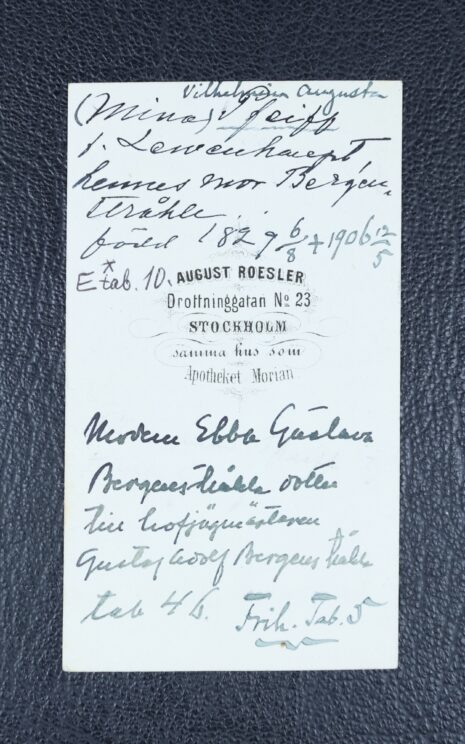 Vilhelmina Augusta
(Mina) Pfeiff
f. Lewenhaupt
hennes mor Bergen-
stråhle
född 1829 6/8 + 1906 12/5
E* tab. 10.
AUGUST ROESLER
Drottninggatan No 23
STOCKHOLM
samma hus som
Apotheket Morian
Modern Ebba Gustava
Bergenstråhle dotter
till hofjägmästaren
Gustaf Adolf Bergenstråhle
tab 46.
Frih. Tab. 5